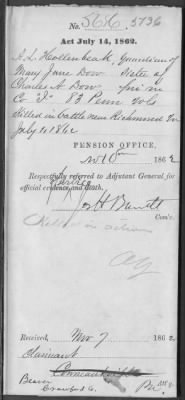 No. 5616 5736
Act July 14, 1862.
S. L. Hollenbeak, Guardian of
Mary Jane Dow Sister of
Charles A. Dow pri in
Co "I" 83 Penn Vols
Killed in battle near Richmond Va
July 1, 1862
PENSION OFFICE,
Nov 8 1862
Respectfully referred to Adjutant General for
official evidence and death.
Jos H Barrett
Com'r.
Killed in action
Received, Nov 7 1862
Claimant
Conneautville
Beaver
Crawford Co.